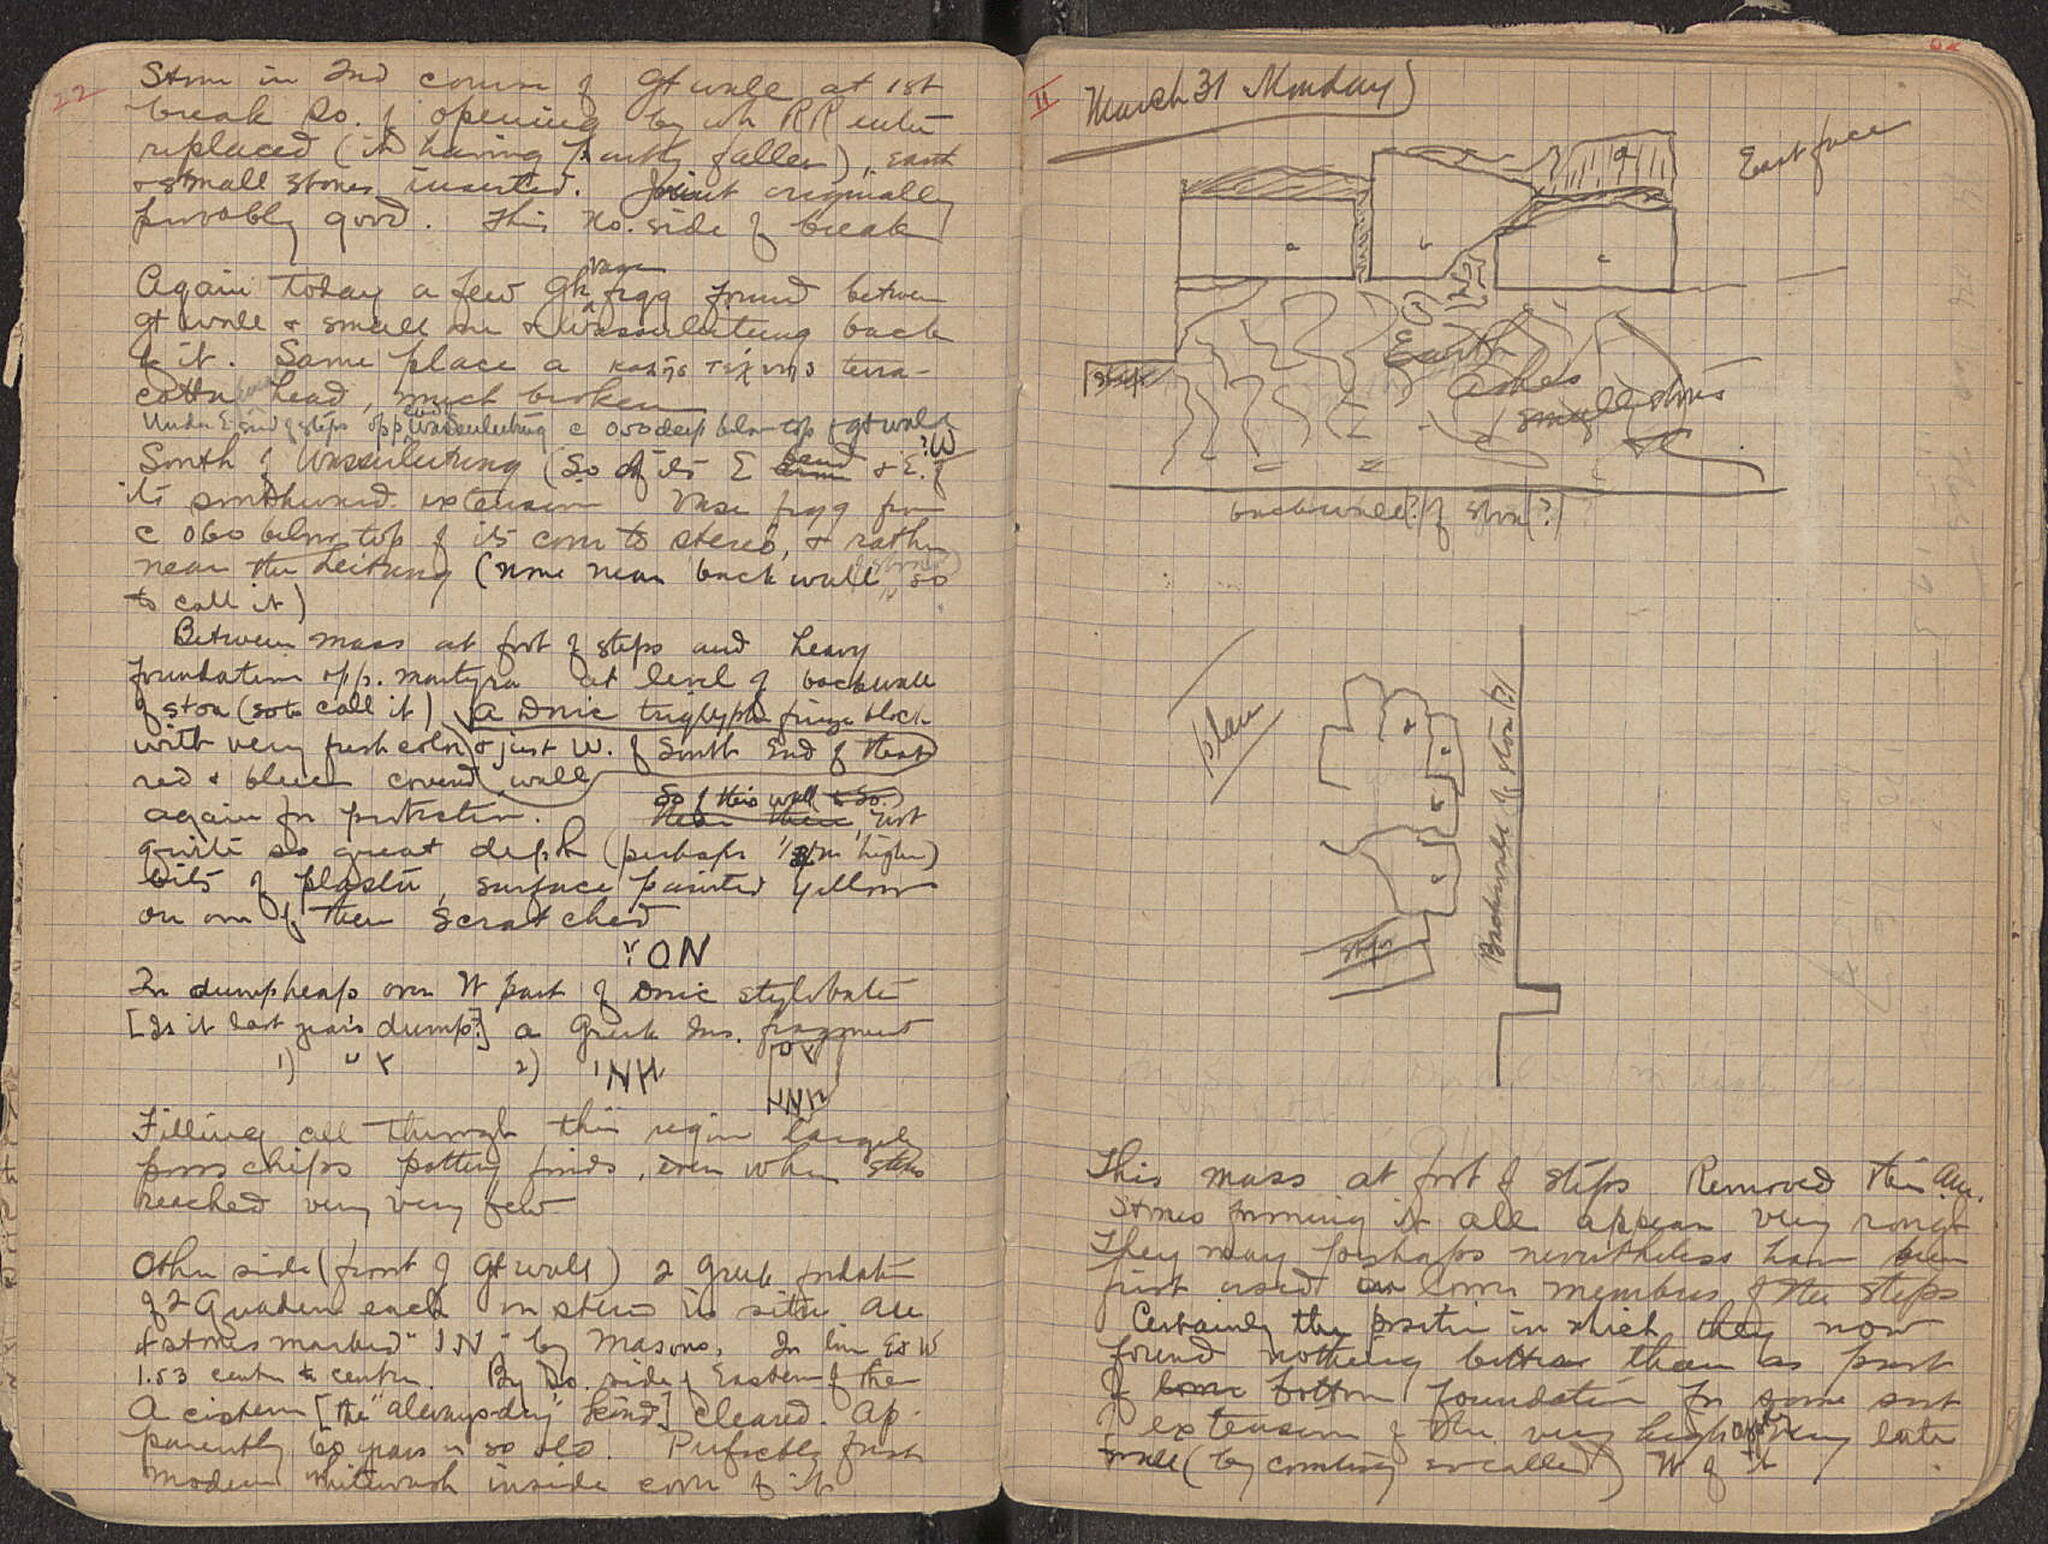 22
Stone in 2nd course of Gt wall at 1st
break So. of opening by wh RR enters
replaced (it having partly fallen), earth
& small stones inserted. Joint originally
probably good. This No. side of break
Again today a few Gk vase frgg found between
Gt wall & small one & Wasserleitung back
of it. Same place a κακῆς τέχνης terra-
cotta head, much broken
Under E end of steps opp. end Wasserleitung c 0.50 deep below top of gt wall
South of Wasserleitung (So of its E bend & E. ?W of
its southward extension Vase frgg from
c 060 below top of its cover to stereo, & rather
near the Leitung (none near back wall of stoa(?), so
to call it)
Between mass at foot of steps and heavy
foundation opp. martyra at level of backwall
of stoa (so to call it) a Doric triglyph frieze block
with very fresh color & just W. of South End of that
red & blue covered wall
again for protection. So of this wall
not
quite so great depth (perhaps 1/2 m higher)
bits of plaster, surface painted yellow
on one of them scratched
ΟΝ
In dumpheaps over W part of Doric stylobate
[Is it last year's dump?] a Greek Ins. fragment
1) υ Υ 2) ΙΝΗ
Filling all through this region largely
poros chips pottery finds, even when stereo
reached very very few
Other side (front of Gt wall) 2 Greek fndatns
of 2 Quadern each on stereo in situ all
4 stones marked "IN" by masons. In line E & W
1.53 center to center. By So. side of Eastern of them
A cistern [the "always-dry" kind] cleared. Ap-
parently 60 years or so old. Perfectly fresh
modern whitewash inside cover of it
11
March 31 Monday
East face
a
b
c
d
steps
Earth
ashes
small stones
backwall(?) of stoa(?)
Plan
Backwall of stoa(?)
steps
This mass at foot of steps Removed this aft.
Stones forming it all appear very rough
They may perhaps nevertheless have been
first used as lower members of the steps
Certainly the position in which they now
found nothing better than as part
of bottom foundation for some sort
of extension of the very high & very late
wall (by courtesy so called) W of it